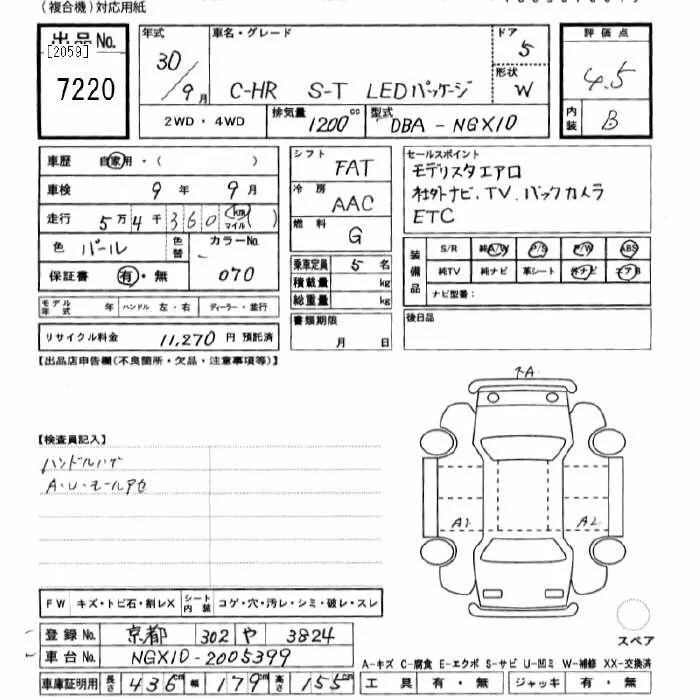 (複合機)対応用紙
出品No.
[2059]
7220
年式 車名・グレード ドア 評価点
30/9月 C-HR S-T LEDパッケージ 5 4.5
形状 W
2WD・4WD 排気量 1200 cc 型式 DBA-NGX10
内装 B
車歴 自家用・( )
車検 9年 9月
走行 5万4千360 (km マイル)
色 パール 色替 カラーNo. 070
保証書 有・無
モデル年式 年 ハンドル 左・右 ディーラー・並行
リサイクル料金 11,270 円 預託済
シフト FAT
冷房 AAC
燃料 G
乗車定員 5 名
積載量 kg
総重量 kg
書類期限 月 日
セールスポイント
モデリスタエアロ
社外ナビ、TV、バックカメラ
ETC
装備品 S/R 純A/W P/S P/W ABS
純TV 純ナビ 革シート 社ナビ エアB
ナビ型番:
後日品
【出品店申告欄(不良箇所・欠品・注意事項等)】
【検査員記入】
ハンドルハゲ
A・U・モールアセ
↑A
A1 A2
スペア
FW キズ・トビ石・割レX シート内装 コゲ・穴・汚レ・シミ・破レ・スレ
登録No. 京都 302 や 3824
車台No. NGX10-2005399
車庫証明用 長さ 436cm 幅 179cm 高さ 155cm
A-キズ C-腐食 E-エクボ S-サビ U-凹ミ W-補修 XX-交換済
工具 有・無 ジャッキ 有・無